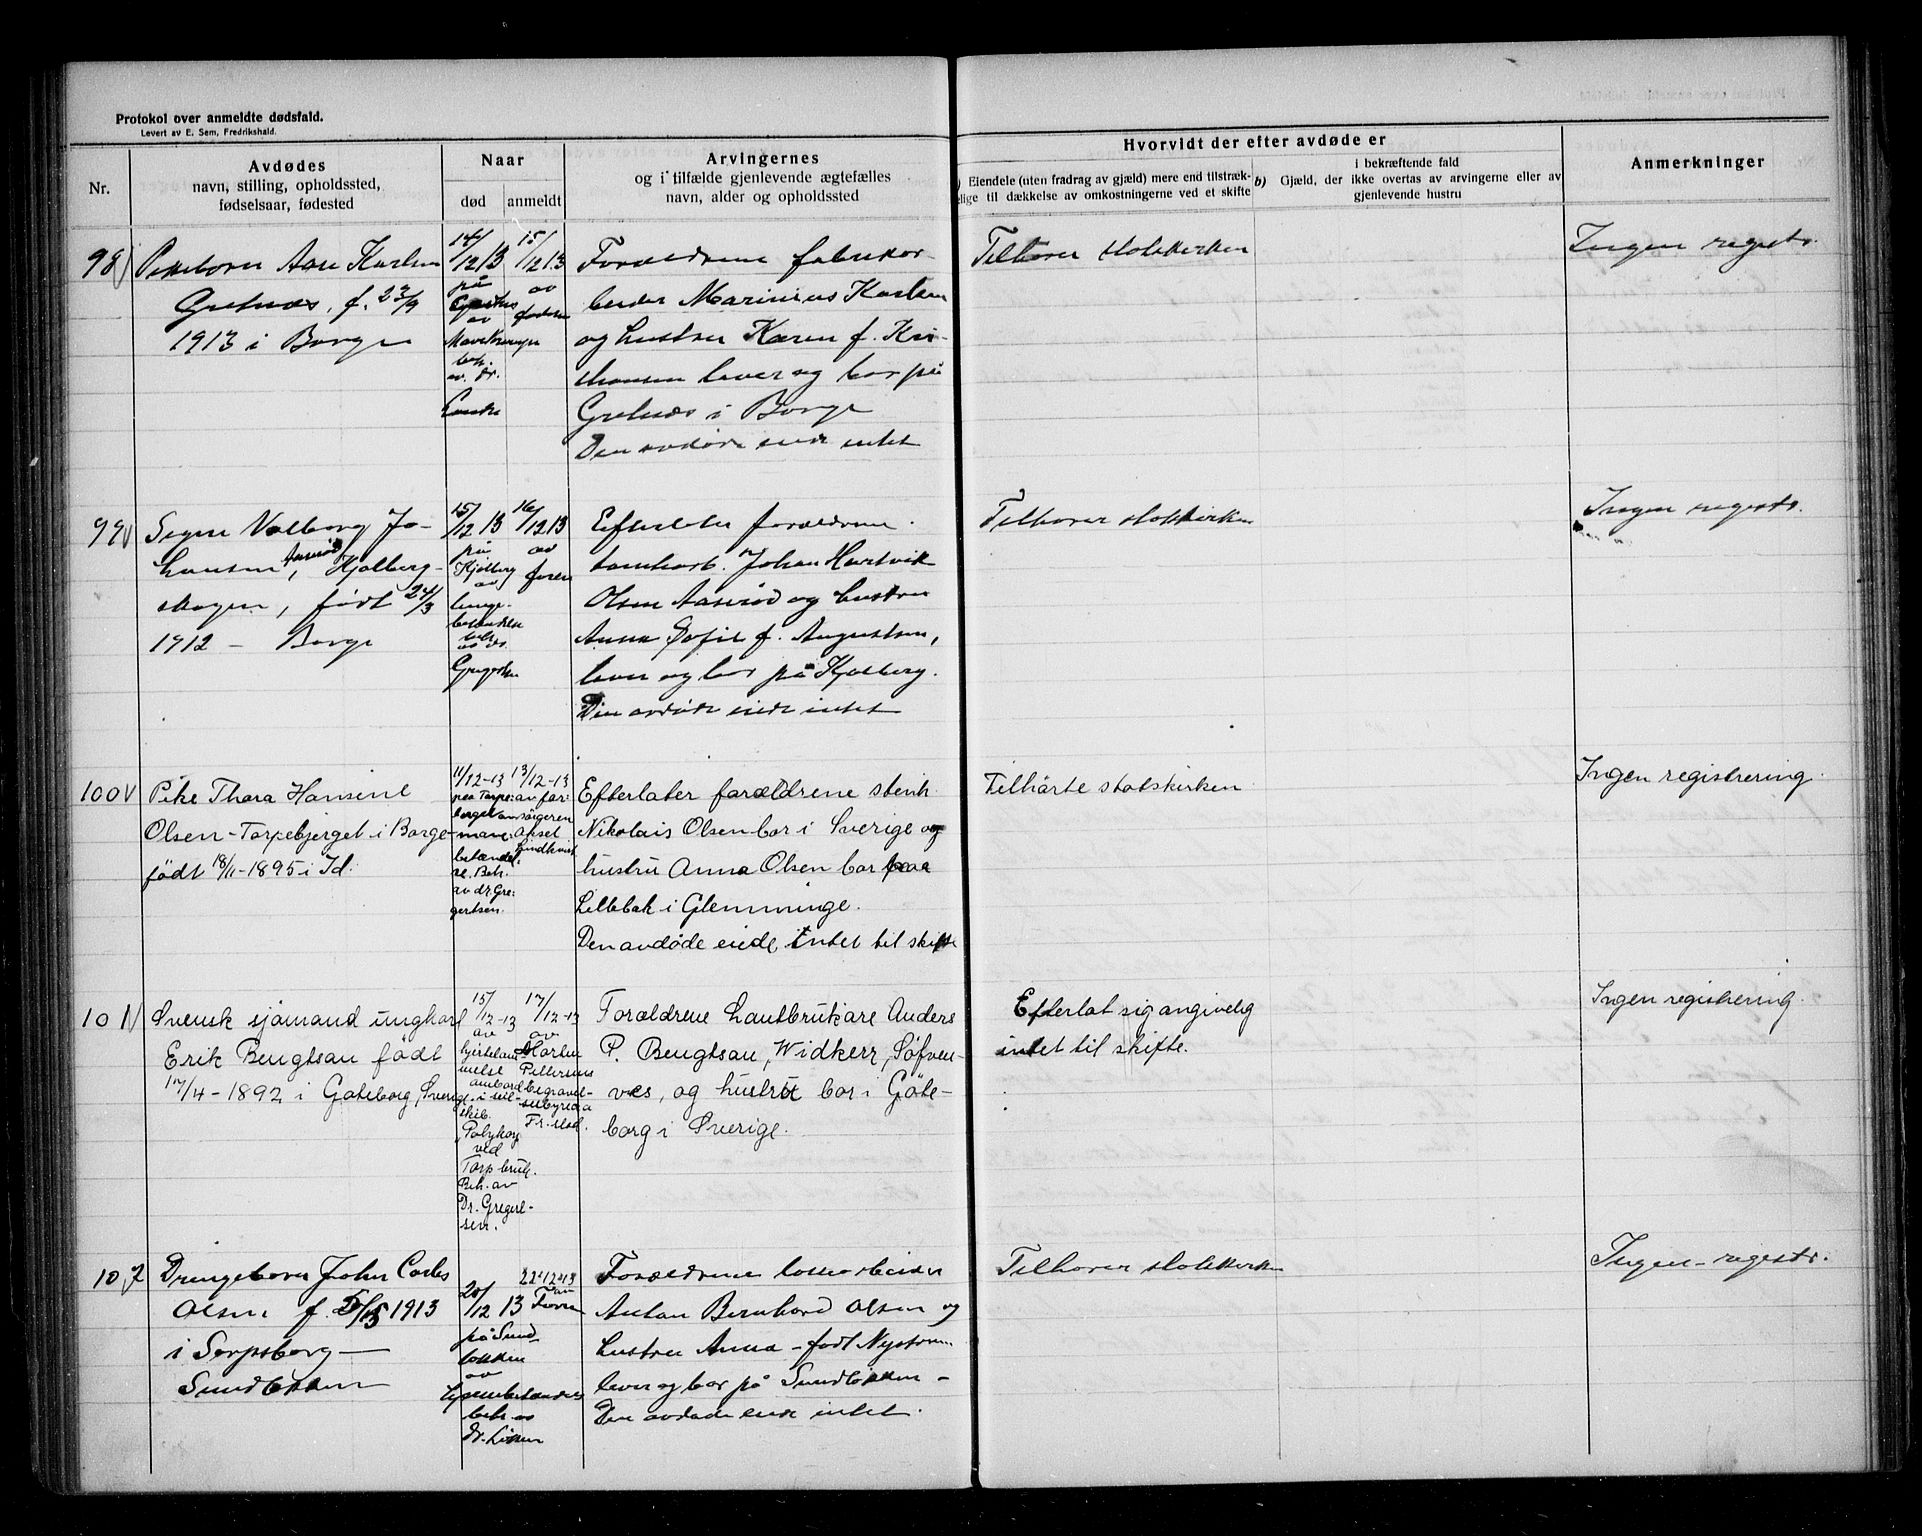 Protokol over anmeldte dødsfald.
Levert av E. Sem, Fredrikshald.
Nr.
Avdødes
navn, stilling, opholdssted,
fødselsaar, fødested
Naar
død
anmeldt
Arvingernes
og i tilfælde gjenlevende ægtefælles
navn, alder og opholdssted
Hvorvidt der efter avdøde er
Eiendele (uten fradrag av gjæld) mere end tilstræk-
lige til dækkelse av omkostningerne ved et skifte
b)
i bekræftende fald
Gjæld, der ikke overtas av arvingerne eller av
gjenlevende hustru
Anmerkninger
98
Pikebarn Aase Karlsen
Grelnæs, f. 23/9
1913 i Borge
14/12 13
på
av
beh.
av dr.
15/12 13
av
faderen
Forældrene fabrikar-
beider Marinius Karlsen
og hustru Karen f. Kri-
stiansen lever og bor på
Grelnæs i Borge
Den avdøde eiede intet
Tilhører statskirken
Ingen registr.
99
Signe Valborg Jo-
hansen, Aaserød Kjølberg-
skogen, født 24/3
1912 – Borge
15/12 13
på
Kjølberg
av
lunge-
betændelse
beh.
av dr.
Gregertsen
16/12 13
av
faren
Efterlater forældrene
tomtearb. Johan Hartvik
Olsen Aaserød og hustru
Anna Sofie f. Augustsen,
lever og bor på Kjølberg.
Den avdøde eiede intet
Tilhører statskirken
Ingen registr.
100
Pike Thora Hansine
Olsen - Torpebjerget i Borge -
født 18/11-1895 i Id.
11/12-13
paa Torpe-
berget av
mave-
betændel-
se. Beh.
av dr. Gre-
gertsen.
13/12-13
av for-
sørgeren
Aksel
Lindkvist
Efterlater forældrene stenh.
Nikolais Olsen bor i Sverige og
hustru Anna Olsen bor paa
Lillebæk i Glemminge.
Den avdøde eiede intet til skifte
Tilhørte statskirken
Ingen registrering.
101
Svensk sjømand ungkarl
Erik Bengtsan født
17/4-1892 i Gøteborg, Sverige
15/12-13
av
hjertelam-
melse
ombord
i seil-
skib.
"Polykarp"
ved
Torp bruk.
Beh. av
Dr. Gregert-
sen.
17/12-13
av
Martin
Pettersens
begravel-
sesbyraa
Fr.stad.
Forældrene Lantbrukare Anders
P. Bengtsan, Widkerr, Söfven-
væs, og hustru bor i Göte-
borg i Sverige.
Efterlot sig angivelig
intet til skifte.
Ingen registrering.
102
Drengebarn John Carlos
Olsen f. 5/5 1913
i Sarpsborg –
Sundløkken
20/12 13
på Sund
løkken
av
beh. av
dr. Løken
22-12-13
av
Faren
Forældrene løsarbeider
Anton Bernhard Olsen og
hustru Anna – født Nystrøm
lever og bor på Sundløkken –
Den avdøde eiede intet.
Tilhører statskirken
Ingen – registr.